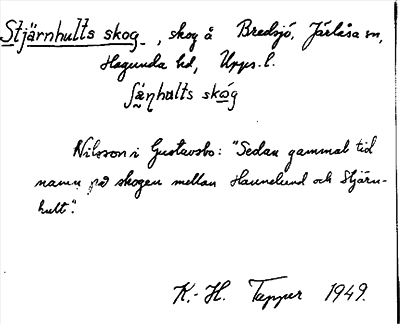 Stjärnhults skog, skog å Bredsjö, Järlåsa sn,
Hagunda hd, Upps. l.
ʃä̀ɳhults skóg
Nilsson i Gustavsbo: "Sedan gammal tid
namn på skogen mellan Hannelund och Stjärn-
hult".
K.-H. Tapper 1949.